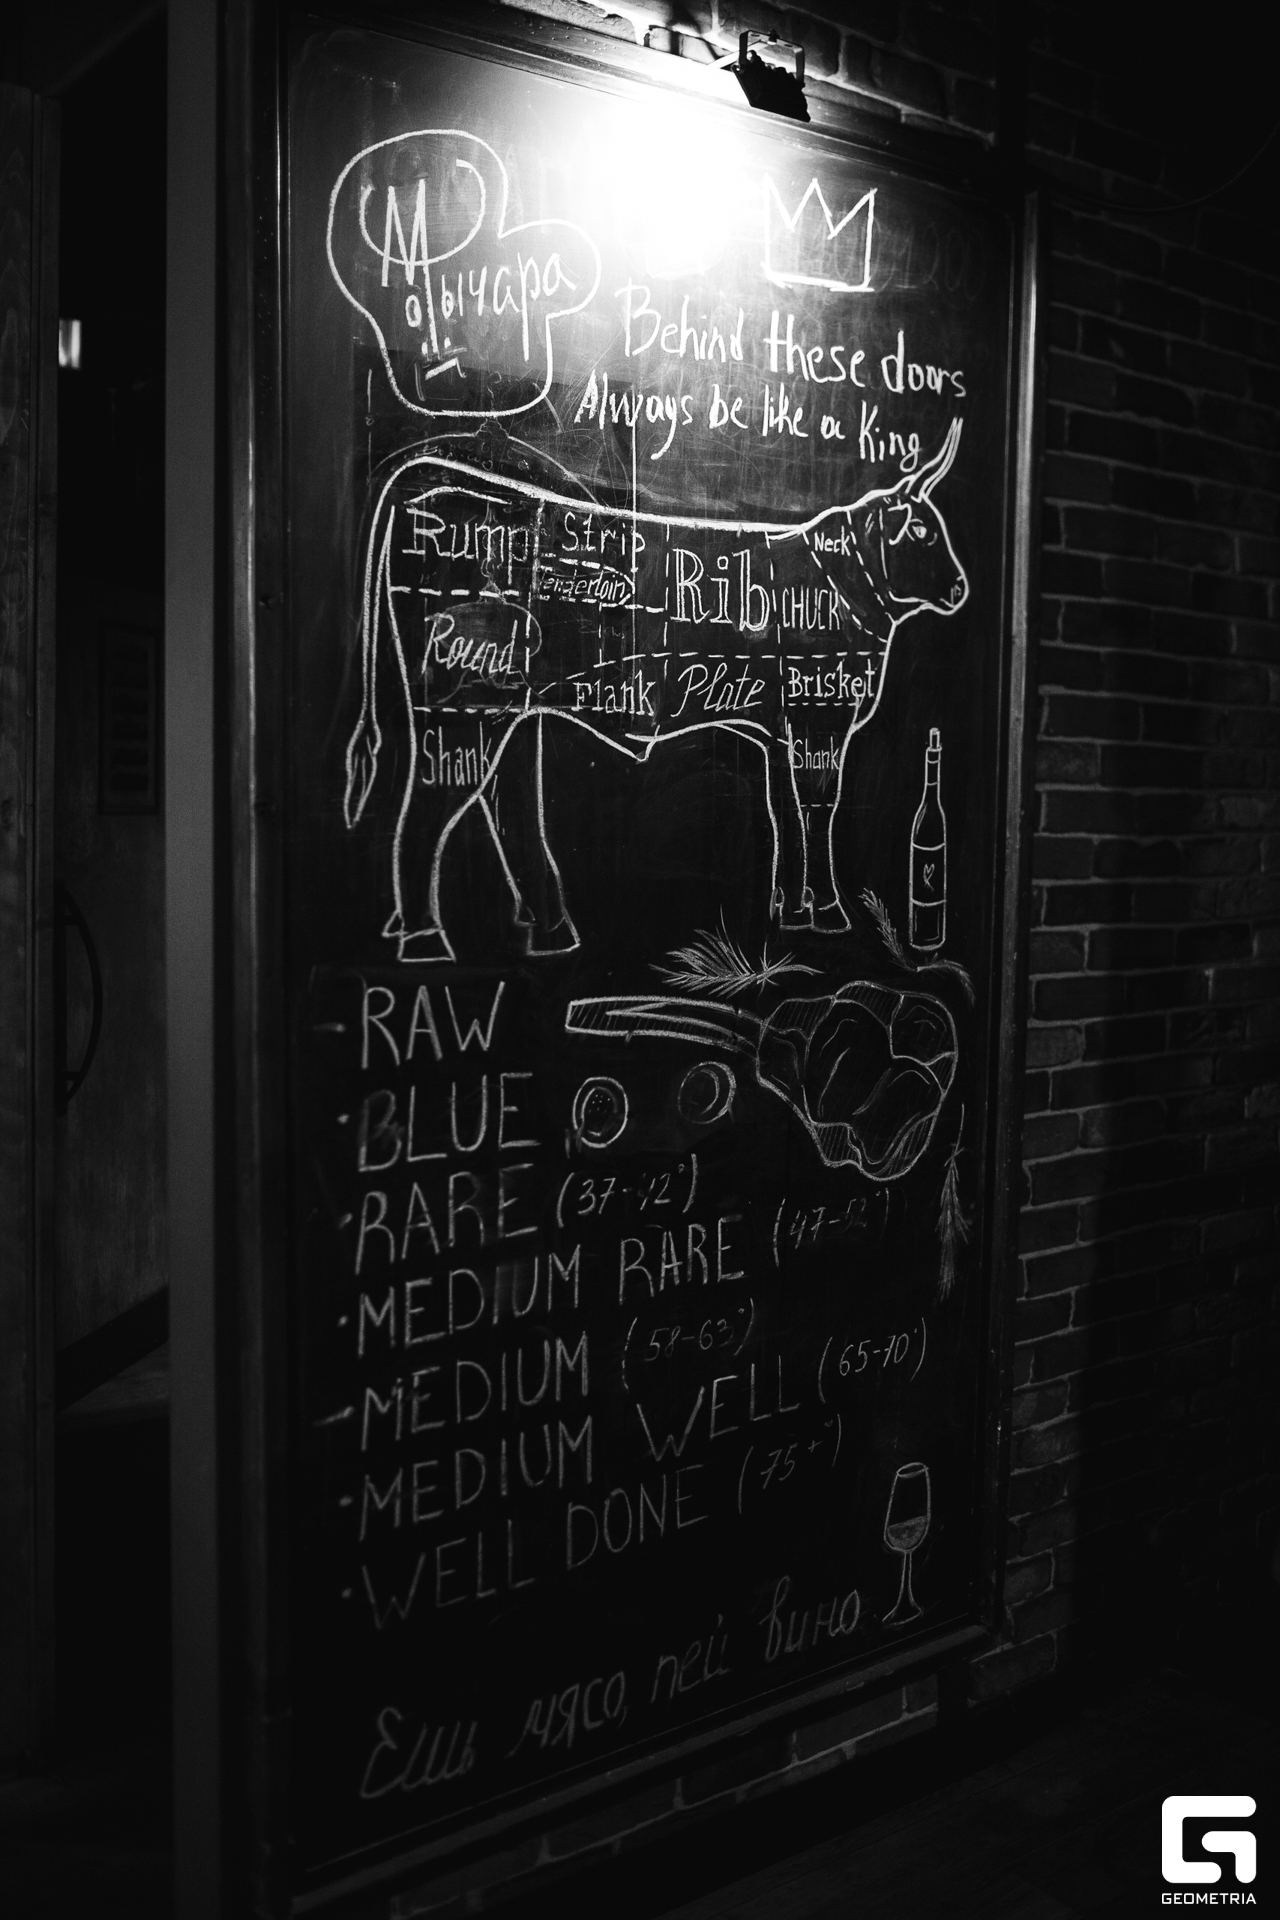 Мычара
Behind these doors
Always be like a King
Rump
Strip
Tenderloin
Rib
Neck
CHUCK
Round
Flank
Plate
Brisket
Shank
Shank
- RAW
· BLUE
· RARE (37-42°)
· MEDIUM RARE (47-52°)
- MEDIUM (58-63°)
· MEDIUM WELL (65-70°)
· WELL DONE (75+°)
Ешь мясо, пей вино
GEOMETRIA